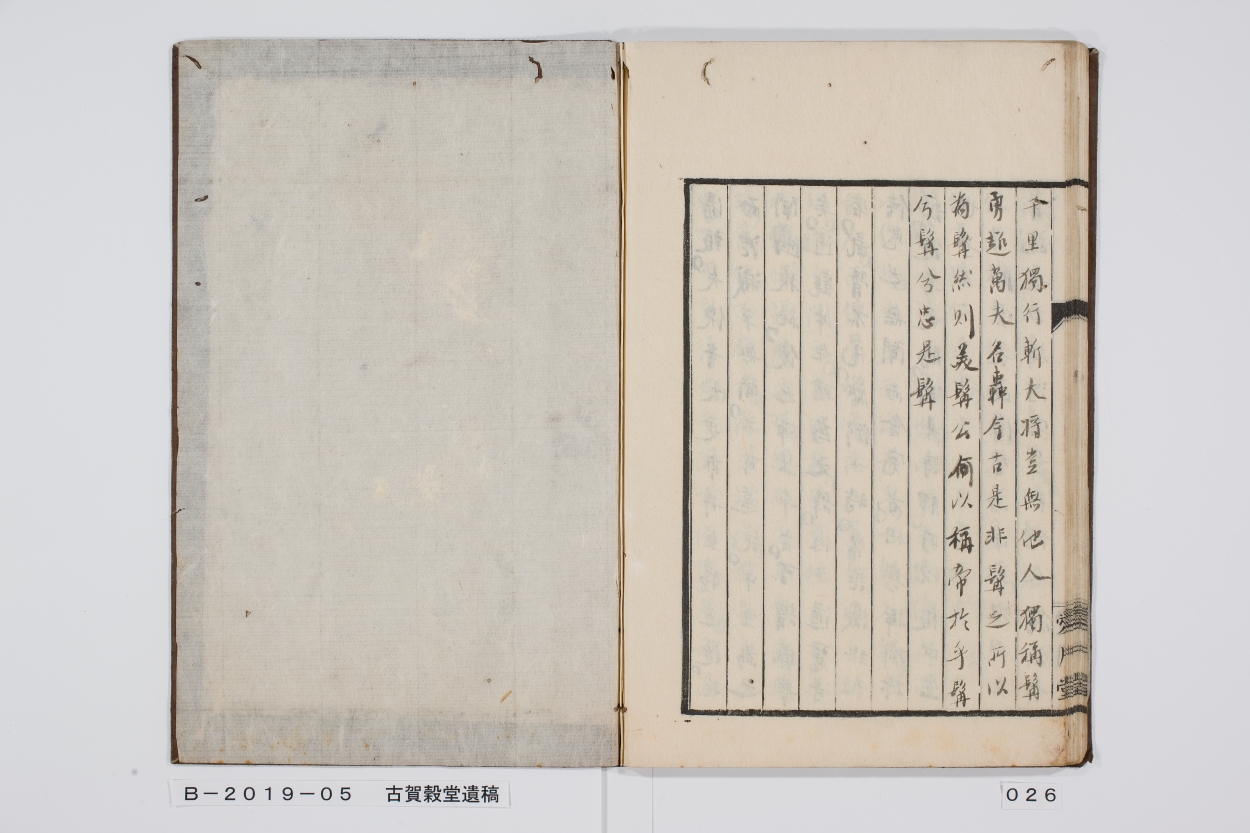 千里獨行斬大将豈無他人獨稱髯
勇趫萬夫名轟今古是非髯之所以
為髯然則美髯公何以稱帝於乎髯
兮髯兮忠是髯
愛月堂
B−2019−05 古賀穀堂遺稿
026